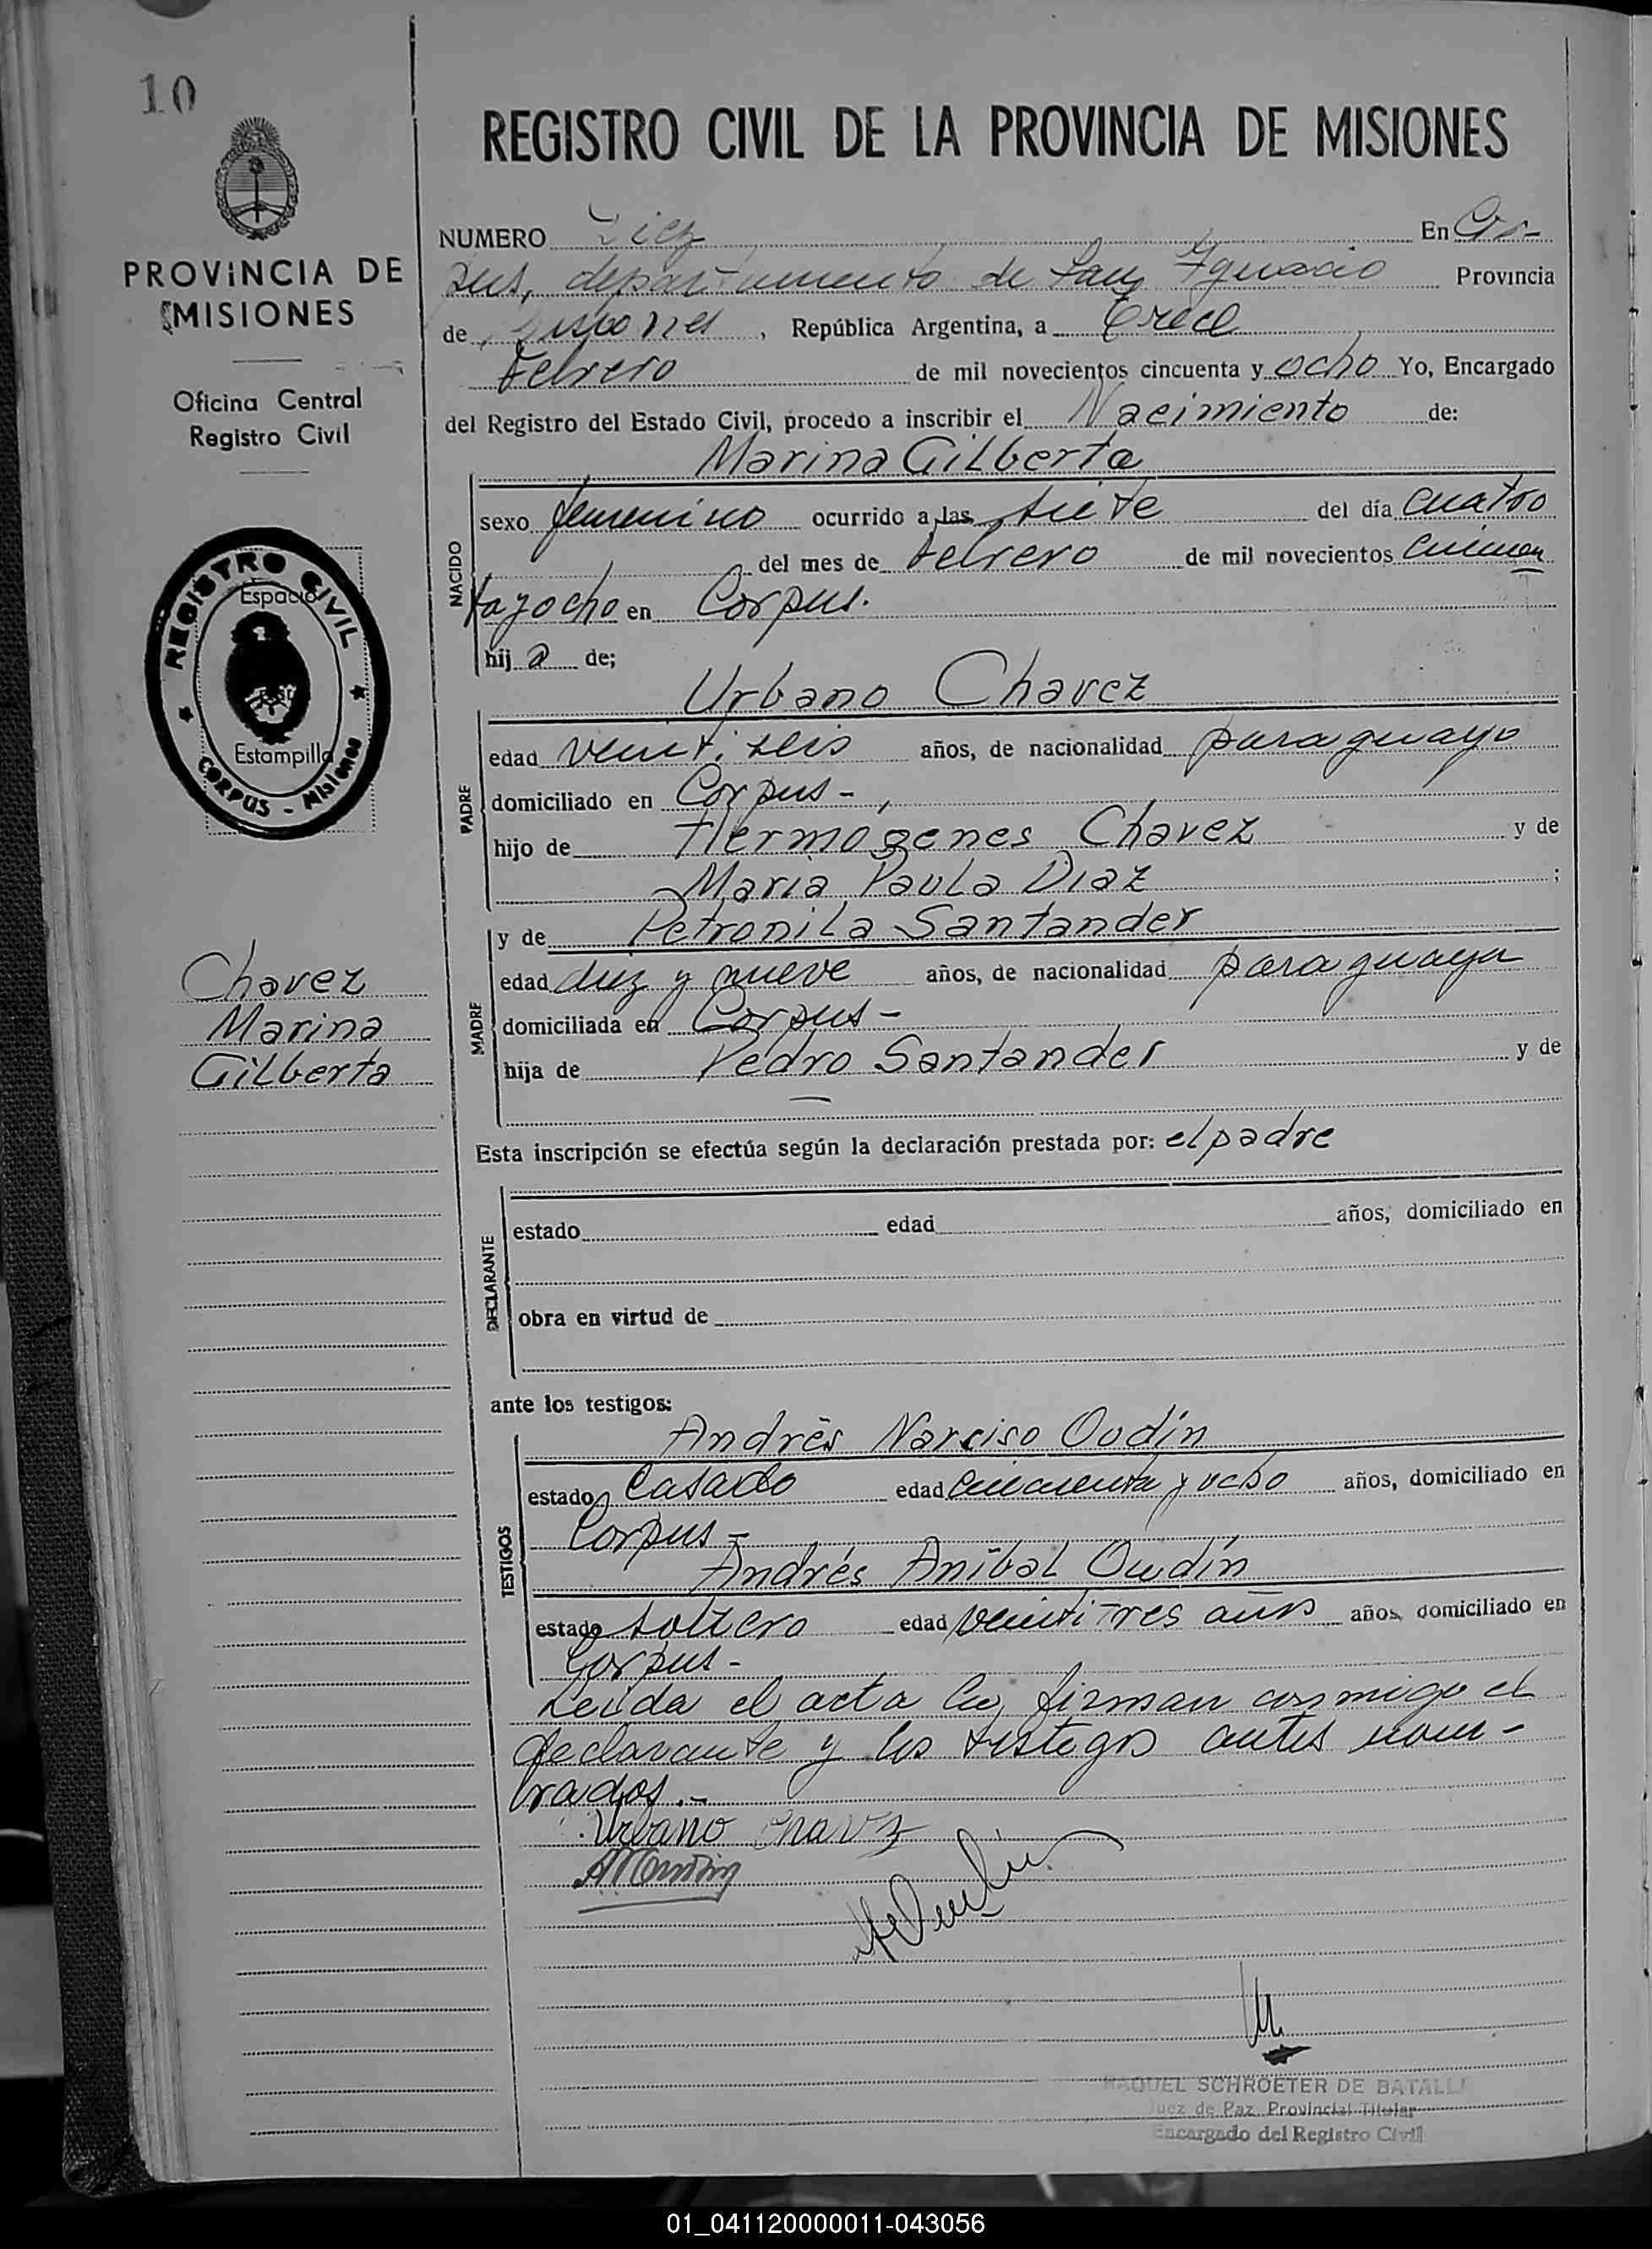 10
REGISTRO CIVIL DE LA PROVINCIA DE MISIONES
PROVINCIA DE
MISIONES
Oficina Central
Registro Civil
REGISTRO CIVIL
Espacio
Estampilla
CORPUS - Misiones
Chavez
Marina
Gilberta
NUMERO Diez En Cor-
pus, departamento de San Ignacio Provincia
de Misiones, República Argentina, a Trece
Febrero de mil novecientos cincuenta y ocho Yo, Encargado
del Registro del Estado Civil, procedo a inscribir el Nacimiento de:
Marina Gilberta
NACIDO
sexo femenino ocurrido a las siete del día cuatro
del mes de Febrero de mil novecientos cincuen
ta y ocho en Corpus.
hij a de;
Urbano Chavez
PADRE
edad veinti seis años, de nacionalidad paraguayo
domiciliado en Corpus -
hijo de Hermógenes Chavez y de
Maria Paula Diaz ;
y de Petronila Santander
MADRE
edad diez y nueve años, de nacionalidad paraguaya
domiciliada en Corpus -
hija de Pedro Santander y de
—
Esta inscripción se efectúa según la declaración prestada por: el padre
DECLARANTE
estado edad años, domiciliado en
obra en virtud de
ante los testigos:
Andrés Narciso Oudín
TESTIGOS
estado Casado edad cincuenta y ocho años, domiciliado en
Corpus -
Andrés Aníbal Oudín
estado soltero edad veinti tres años años, domiciliado en
Corpus -
Leida el acta la firman conmigo el
declarante y los testigos antes nom-
brados.-
Urbano Chavz
RAQUEL SCHROETER DE BATALLA
Juez de Paz Provincial Titular
Encargado del Registro Civil
01_041120000011-043056